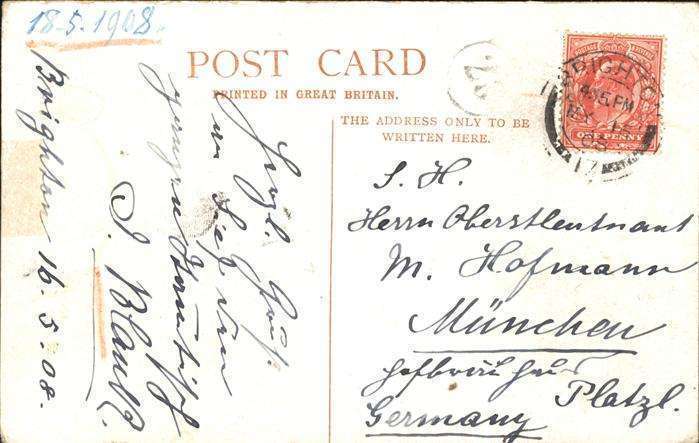 18.5.1908.
POST CARD
PRINTED IN GREAT BRITAIN.
THE ADDRESS ONLY TO BE
WRITTEN HERE.
BRIGHTO
4.15 PM
MY 16
08
ONE PENNY
Brighton 16.5.08.
Herzl. Gruß
J. Blank
S. H.
Herrn Oberstleutnant
M. Hofmann
München
Hofbräuhaus
Platzl.
Germany